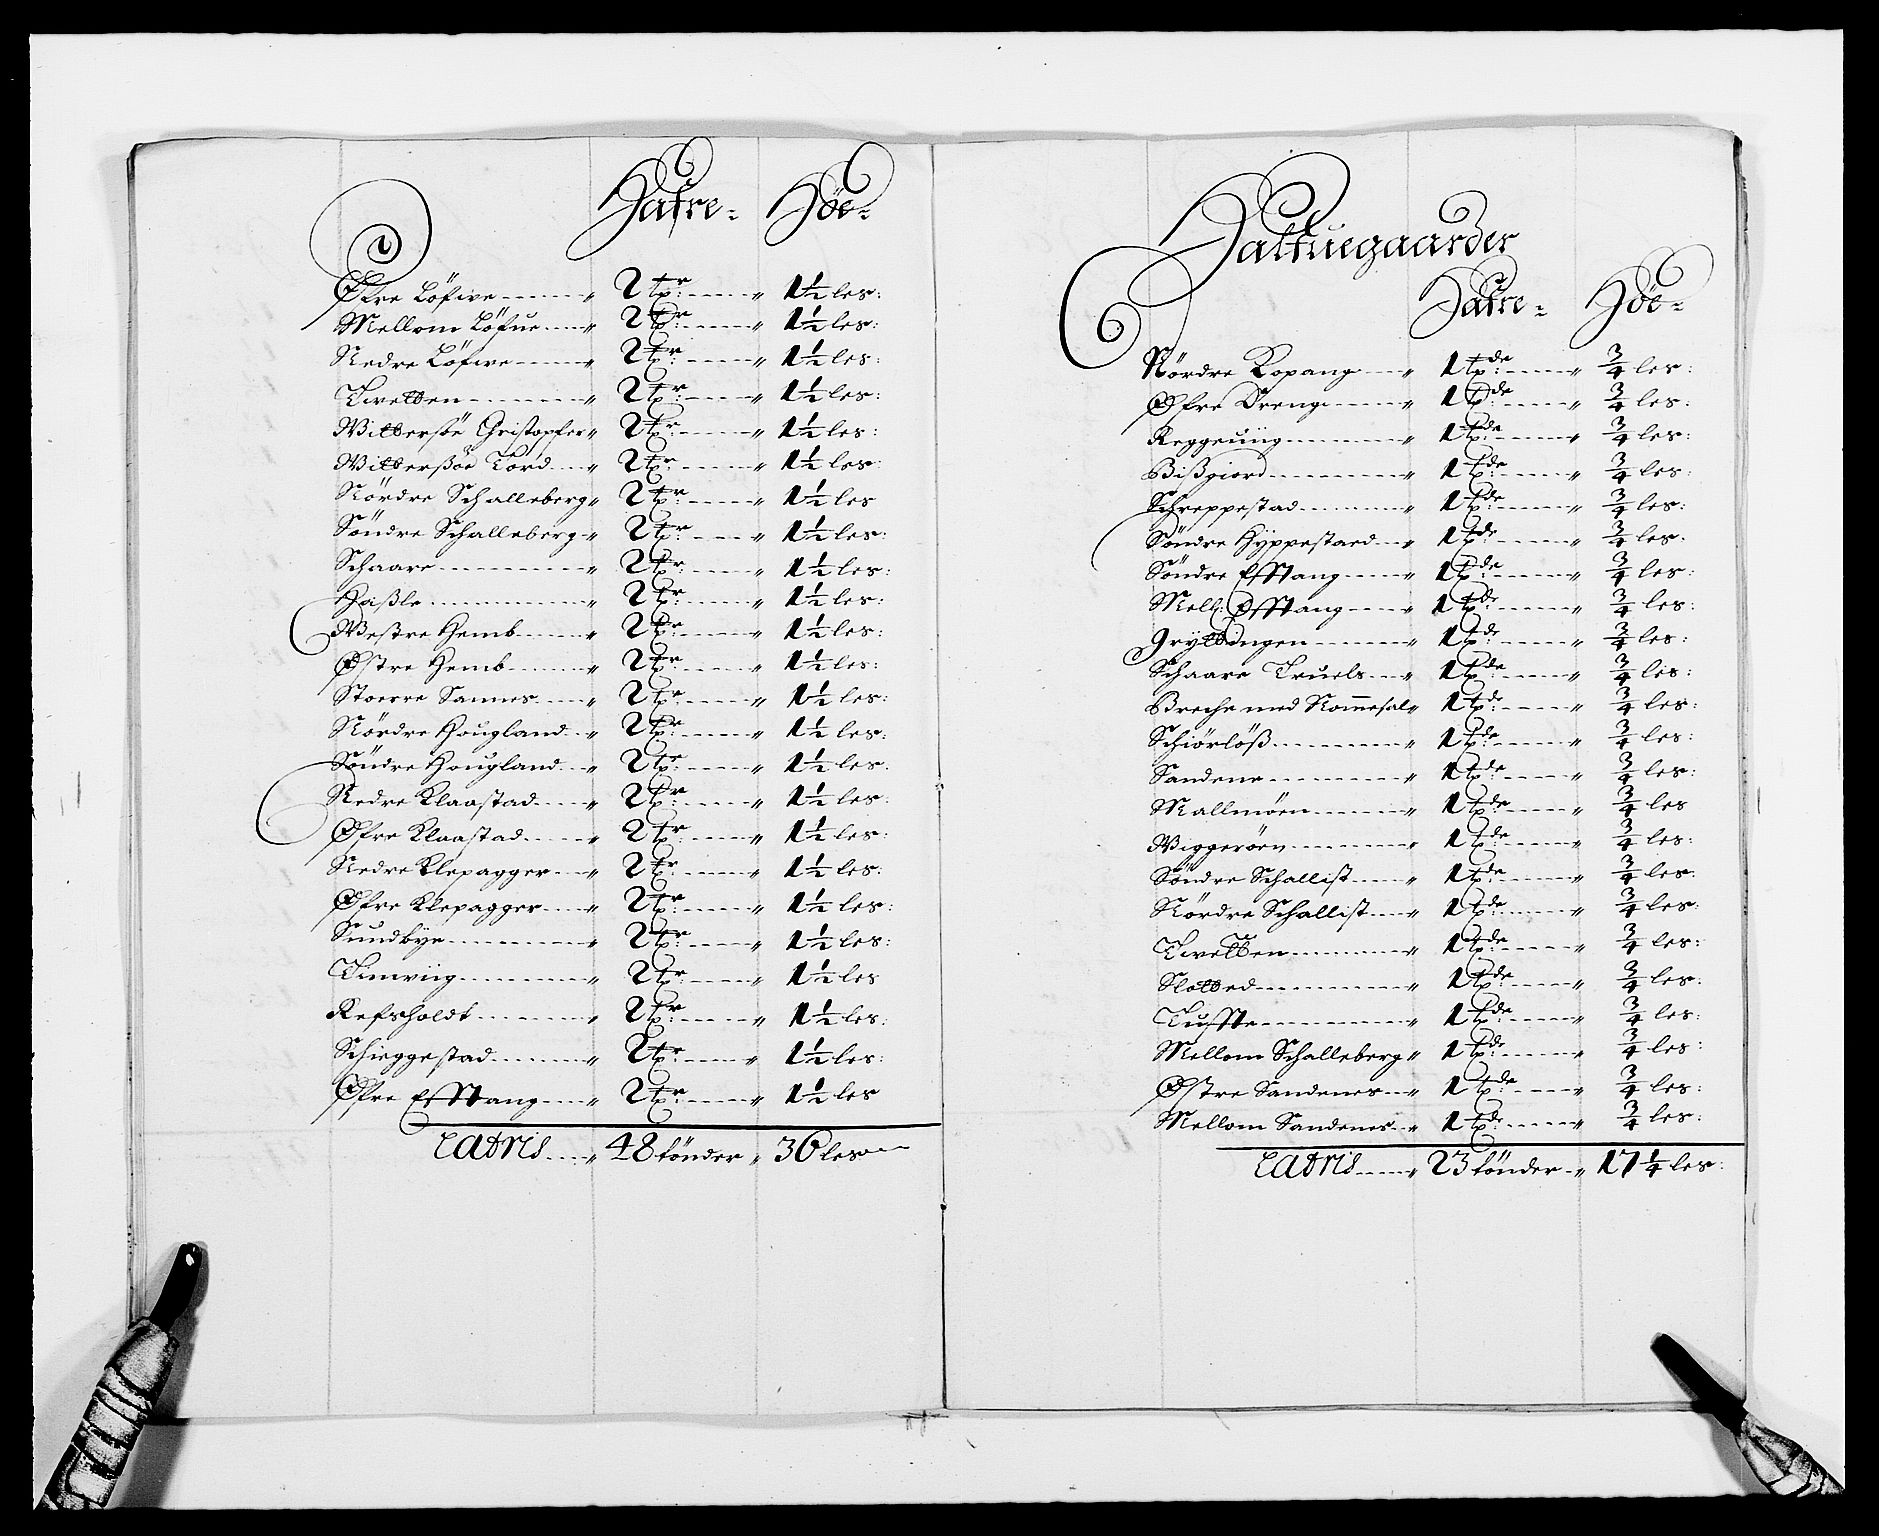 Hafre- Höe-
Øfre Löfwe 2 tr: 1½ les:
Mellom Löfue 2 tr: 1½ les:
Nedre Löfwe 2 tr: 1½ les:
Twetten 2 tr: 1½ les:
Wittersöe Christopher 2 tr: 1½ les:
Witterßöe Tord 2 tr: 1½ les
Nördre Schalleberg 2 tr: 1½ les
Söndre Schalleberg 2 tr: 1½ les:
Schaare 2 tr: 1½ les:
Haßle 2 tr: 1½ les:
Westre Hemb 2 tr: 1½ les:
Østre Hemb 2 tr: 1½ les:
Stoerre Sannes 2 tr: 1½ les:
Nördre Hougland 2 tr: 1½ les:
Söndre Hougland 2 tr: 1½ les:
Nedre Klaastad 2 tr: 1½ les:
Øfre Klaastad 2 tr: 1½ les:
Nedre Klepagger 2 tr: 1½ les:
Øfre Klepagger 2 tr: 1½ les:
Sundbye 2 tr: 1½ les:
Timwiig 2 tr: 1½ les
Refsholdt 2 tr: 1½ les:
Schieggestad 2 tr: 1½ les:
Øfre Efftang 2 tr: 1½ les
Lateris 48 tönder 36 les
Halfuegaarder
Hafre- Höe-
Nördre Kopang 1 tde: ¾ les:
Øfre Oreng 1 tde: ¾ les:
Reggeuiig 1 tde: ¾ les:
Bißgiord 1 tde: ¾ les:
Schreppestad 1 tde: ¾ les:
Söndre Hyppestaed 1 tde: ¾ les.
Söndre Efftang 1 tde: ¾ les:
Mell: Efftang 1 tde: ¾ les:
Gryttingen 1 tde: ¾ les:
Schaare Truels 1 tde: ¾ les:
Breche med Rom̄esal 1 tde: ¾ les:
Schiörlöß 1 tde: ¾ les:
Sandene 1 tde: ¾ les:
Mallmöen 1 tde: ¾ les
Wiggeröen 1 tde: ¾ les:
Söndre Schallist 1 tde: ¾ les:
Nördre Schallist 1 tde: ¾ les:
Twetten 1 tde: ¾ les:
Slotted 1 tde: ¾ les:
Tuffte 1 tde: ¾ les:
Mellom Schalleberg 1 tde: ¾ les:
Østre Sandenes 1 tde: ¾ les:
Mellom Sandenes 1 tde: ¾ les:
Lateris 23 tönder 17¼ les: